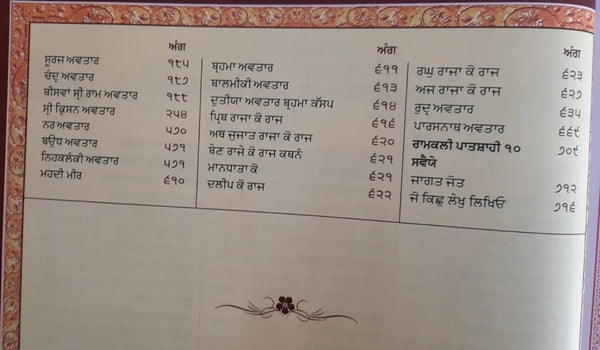 ਅੰਗ
ਸੂਰਜ ਅਵਤਾਰ ੧੮੫
ਚੰਦ੍ਰ ਅਵਤਾਰ ੧੮੭
ਬੀਸਵਾਂ ਸ੍ਰੀ ਰਾਮ ਅਵਤਾਰ ੧੮੮
ਸ੍ਰੀ ਕ੍ਰਿਸਨ ਅਵਤਾਰ ੨੫੪
ਨਰ ਅਵਤਾਰ ੫੭੦
ਬਊਧ ਅਵਤਾਰ ੫੭੧
ਨਿਹਕਲੰਕੀ ਅਵਤਾਰ ੫੭੧
ਮਹਦੀ ਮੀਰ ੬੧੦
ਅੰਗ
ਬ੍ਰਹਮਾ ਅਵਤਾਰ ੬੧੧
ਬਾਲਮੀਕੀ ਅਵਤਾਰ ੬੧੩
ਦੁਤੀਯਾ ਅਵਤਾਰ ਬ੍ਰਹਮਾ ਕੱਸਪ ੬੧੪
ਪ੍ਰਿਥ ਰਾਜਾ ਕੋ ਰਾਜ ੬੧੬
ਅਥ ਜੁਜਾਤ ਰਾਜਾ ਕੋ ਰਾਜ ੬੨੦
ਬੇਣ ਰਾਜੇ ਕੋ ਰਾਜ ਕਥਨੰ ੬੨੧
ਮਾਨਧਾਤਾ ਕੋ ੬੨੧
ਦਲੀਪ ਕੋ ਰਾਜ ੬੨੨
ਅੰਗ
ਰਘੁ ਰਾਜਾ ਕੋ ਰਾਜ ੬੨੩
ਅਜ ਰਾਜਾ ਕੋ ਰਾਜ ੬੨੭
ਰੁਦ੍ਰ ਅਵਤਾਰ ੬੩੫
ਪਾਰਸਨਾਥ ਅਵਤਾਰ ੬੬੯
ਰਾਮਕਲੀ ਪਾਤਸ਼ਾਹੀ ੧੦ ੭੦੯
ਸਵੈਯੇ
ਜਾਗਤ ਜੋਤ ੭੧੨
ਜੋ ਕਿਛੁ ਲੇਖੁ ਲਿਖਿਓ ੭੧੬